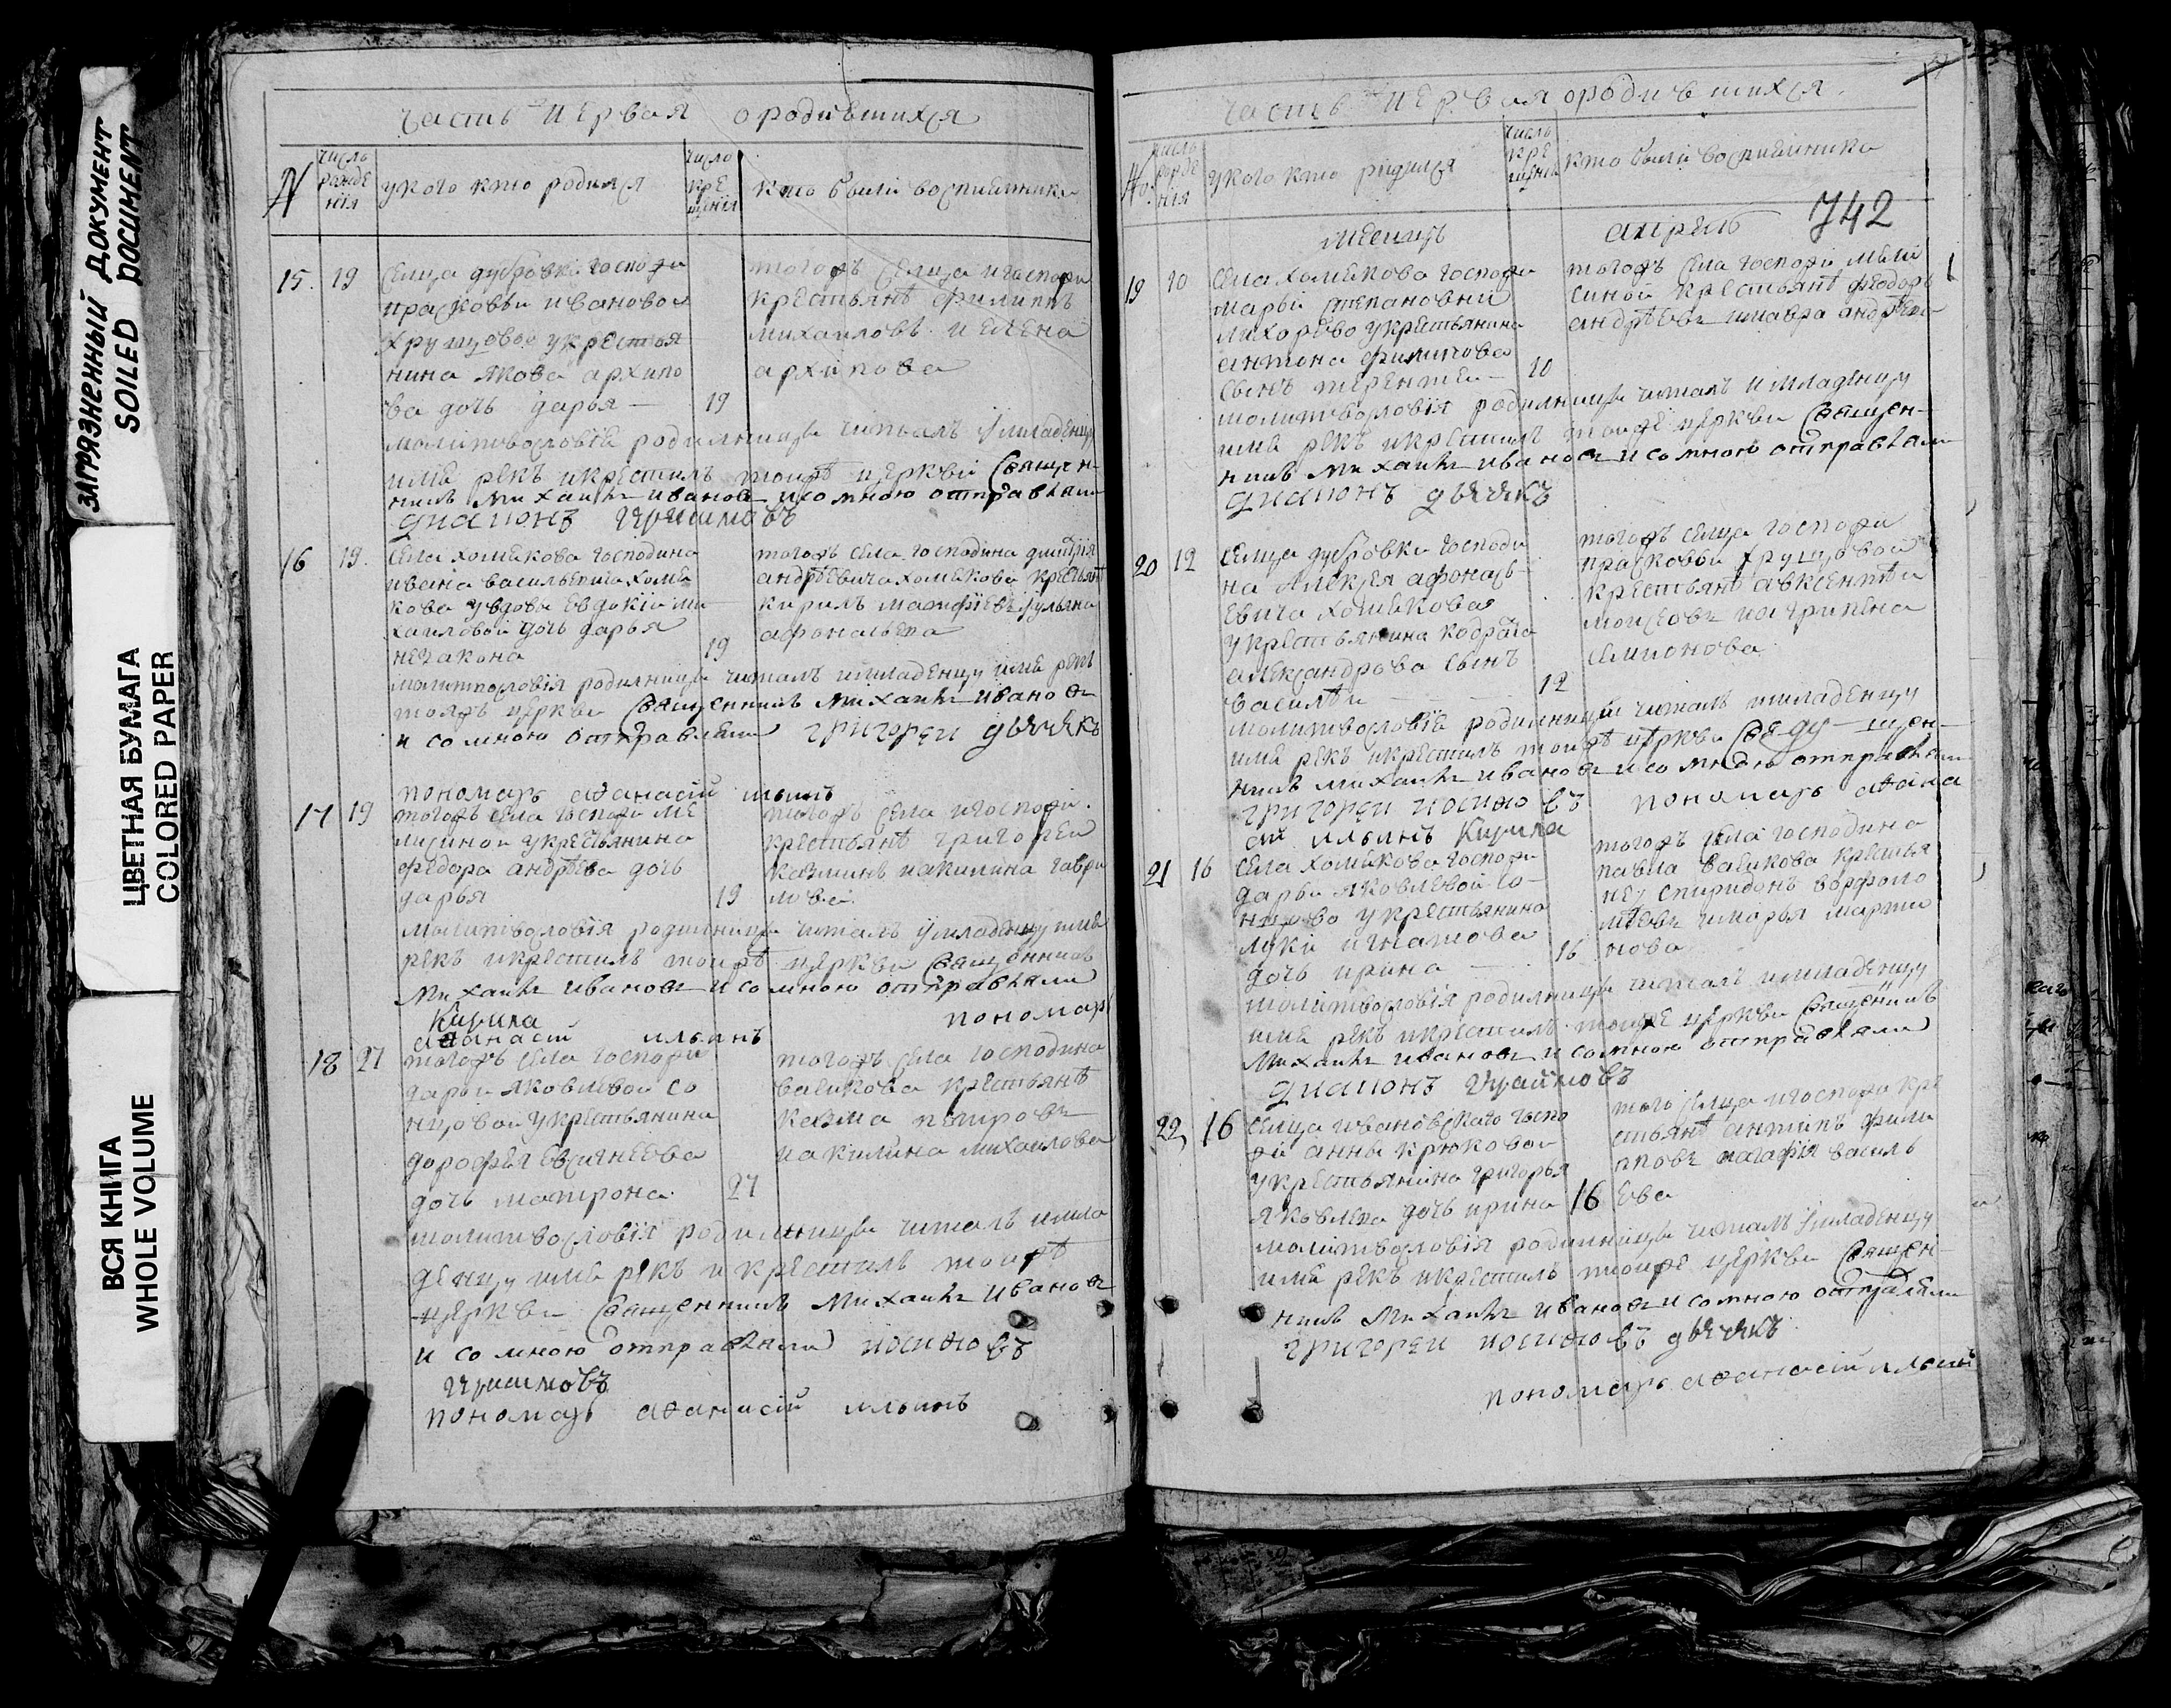 ЗАГРЯЗНЕННЫЙ ДОКУМЕНТ
SOILED DOCUMENT
ЦВЕТНАЯ БУМАГА
COLORED PAPER
ВСЯ КНИГА
WHOLE VOLUME
часть первая о родившихся
N
число рожде нiя
у кого кто родился
число кре щенiя
кто были восприемники
15. 19 селца дубровки госпожи
прасковьи ивановой
хрущовой у крестья
нина якова архипо
ва дочь дарья — 19
тогожъ селца и госпожи
крестьянѣ филиппъ
михаиловъ и елена
архипова
молитвословiе родилнице читалъ i младенцу
имя рекъ и крестилъ тоижъ церкви священ-
никъ Михаилъ иванов и со мною отправляли
диаконъ
16 19. села хомякова господина
ивана васильевича хомя
кова у вдовы евдокiи ми
хаиловой дочь дарья
незакона 19
тогожъ села господина дмитрiя
андрѣевича хомякова крестьянѣ
кирилъ матфiевъ iульяна
афонасьева
молитвословiя родилнице читалъ и младенцу имя рекъ
тояжъ церкви священникъ Михаилъ иванов
и со мною отправляли григореи дьячекъ
пономарь аѳанасiй ильинъ
17 19 тогожъ села госпожи ме
лициной у крестьянина
федора андрѣева дочь
дарья 19
тогожъ села и госпожи
крестьянѣ григореи
казминъ и акилина гаври
лова
молитвословiя родилнице читалъ i младенцу имя
рекъ и крестилъ тоижъ церкви священникъ
Михаилъ иванов и со мною отправляли
Кирила пономарь
аѳанасiй ильинъ
18 27 тогожъ села госпожи
дарьи яковлевой со
нцовой у крестьянина
дорофея евсигнеева
дочь матрона. 27
тогожъ села господина
вабикова крестьянѣ
казма петровъ
и акилина михаилова
молитвословiя родилнице читалъ и мла
денцу имя рекъ и крестилъ тоижъ
церкви священникъ Михаилъ иванов
и со мною отправляли иосиѳовъ
пономарь аѳанасiй ильинъ
часть первая о родившихся.
No.
число рожде нiя
у кого кто родился
число кре щенiя
кто были восприемники
742
месяцъ апрель
19 10 села хомякова госпожи
марьи степановны
лихорево у крестьянина
антона филипова
сынъ терентеи — 10
тогожъ села госпожи мели
синой крестьянѣ феодоръ
андрѣевъ и мавра андрѣева
молитвословiя родилнице читалъ и младенцу
имя рекъ и крестилъ тоиже церкви священ-
никъ Михаилъ иванов и со мною отправляли
диаконъ дьячекъ
20 12 селца дубровки господи
на алексея афонась-
евича хомякова
у крестьянина кодрата
александрова сынъ
василеи — 12
тогожъ селца госпожи
прасковьи хрущовой
крестьянѣ авксентеи
моисеовъ и агрипена
семионова
молитвословiе родилнице читалъ и младенцу
имя рекъ и крестилъ тоижъ церкви
никъ Михаилъ иванов и со мною отправляли
григореи иосиѳовъ пономарь аѳана
сiй ильинъ Кирила
21 16 села хомякова госпожи
дарьи яковлевой со-
нцово у крестьянина
луки игнатова
дочь ирина — 16
тогожъ села господина
павла вабикова крестья
не, спиридонъ ворфоло
мѣевъ и марья марти
нова
молитвословiя родилнице читалъ и младенцу
имя рекъ и крестилъ тоиже церкви священникъ
Михаилъ иванов и со мною отправляли
диаконъ
22, 16 селца ивановскаго госпо
жи анны крюковой
у крестьянина григорья
яковлева дочь ирина 16
того селца и госпожи кре
стьянѣ антипъ фили
повъ агафiя василь
ева
молитвословiя родилнице читалъ i младенцу
имя рекъ и крестилъ тоиже церкви священ-
никъ Михаилъ иванов и со мною отправляли
григореи иосиѳовъ дьячекъ
пономарь аѳанасiй ильинъ